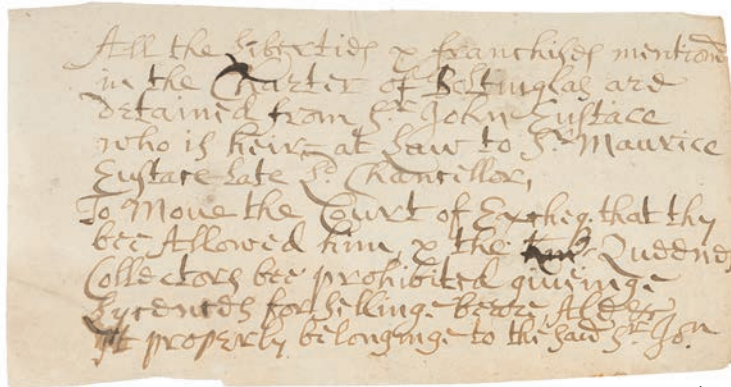 All the Liberties & franchises mentiond
in the Charter of Boltinglas are
detained from Sr. John Eustace
who is heir at Law to Sr. Maurice
Eustace Late Ld. Chancellor,
To Move the Court of Excheq. that they
bee Allowed him & the Queenes
Collectors bee prohibited giveinge
Lycences for selling beere Ale &c
It properly belonginge to the said Sr. Jon